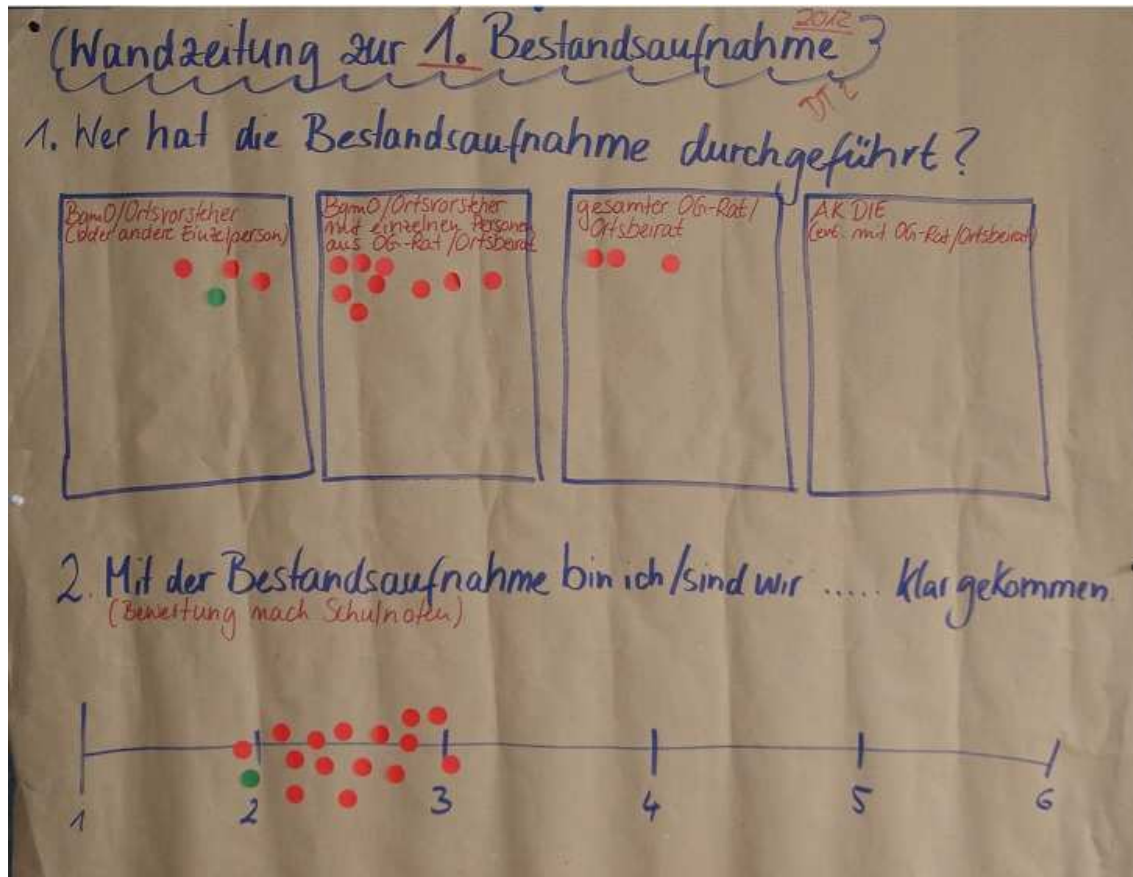 2012
(Wandzeitung zur 1. Bestandsaufnahme)
1. Wer hat die Bestandsaufnahme durchgeführt?
BgmO/Ortsvorsteher
(oder andere Einzelperson)
BgmO/Ortsvorsteher
mit einzelnen Personen
aus OG-Rat/Ortsbeirat
gesamter OG-Rat/
Ortsbeirat
AK DIE
(evt. mit OG-Rat/Ortsbeirat)
2. Mit der Bestandsaufnahme bin ich/sind wir ..... klar gekommen.
(Bewertung nach Schulnoten)
1 2 3 4 5 6